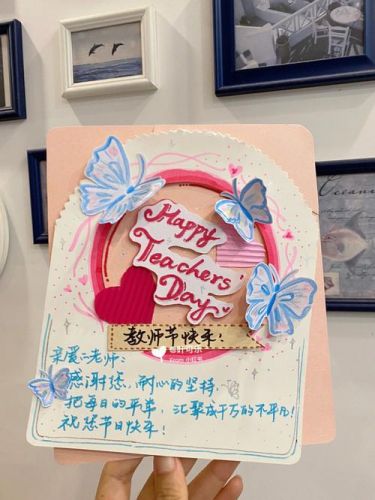 Happy
Teachers'
Day
教师节快乐!
亲爱的老师:
感谢您,耐心的坚持,
把每日的平举,汇聚成千万的不平凡!
祝您节日快乐!
Oceani